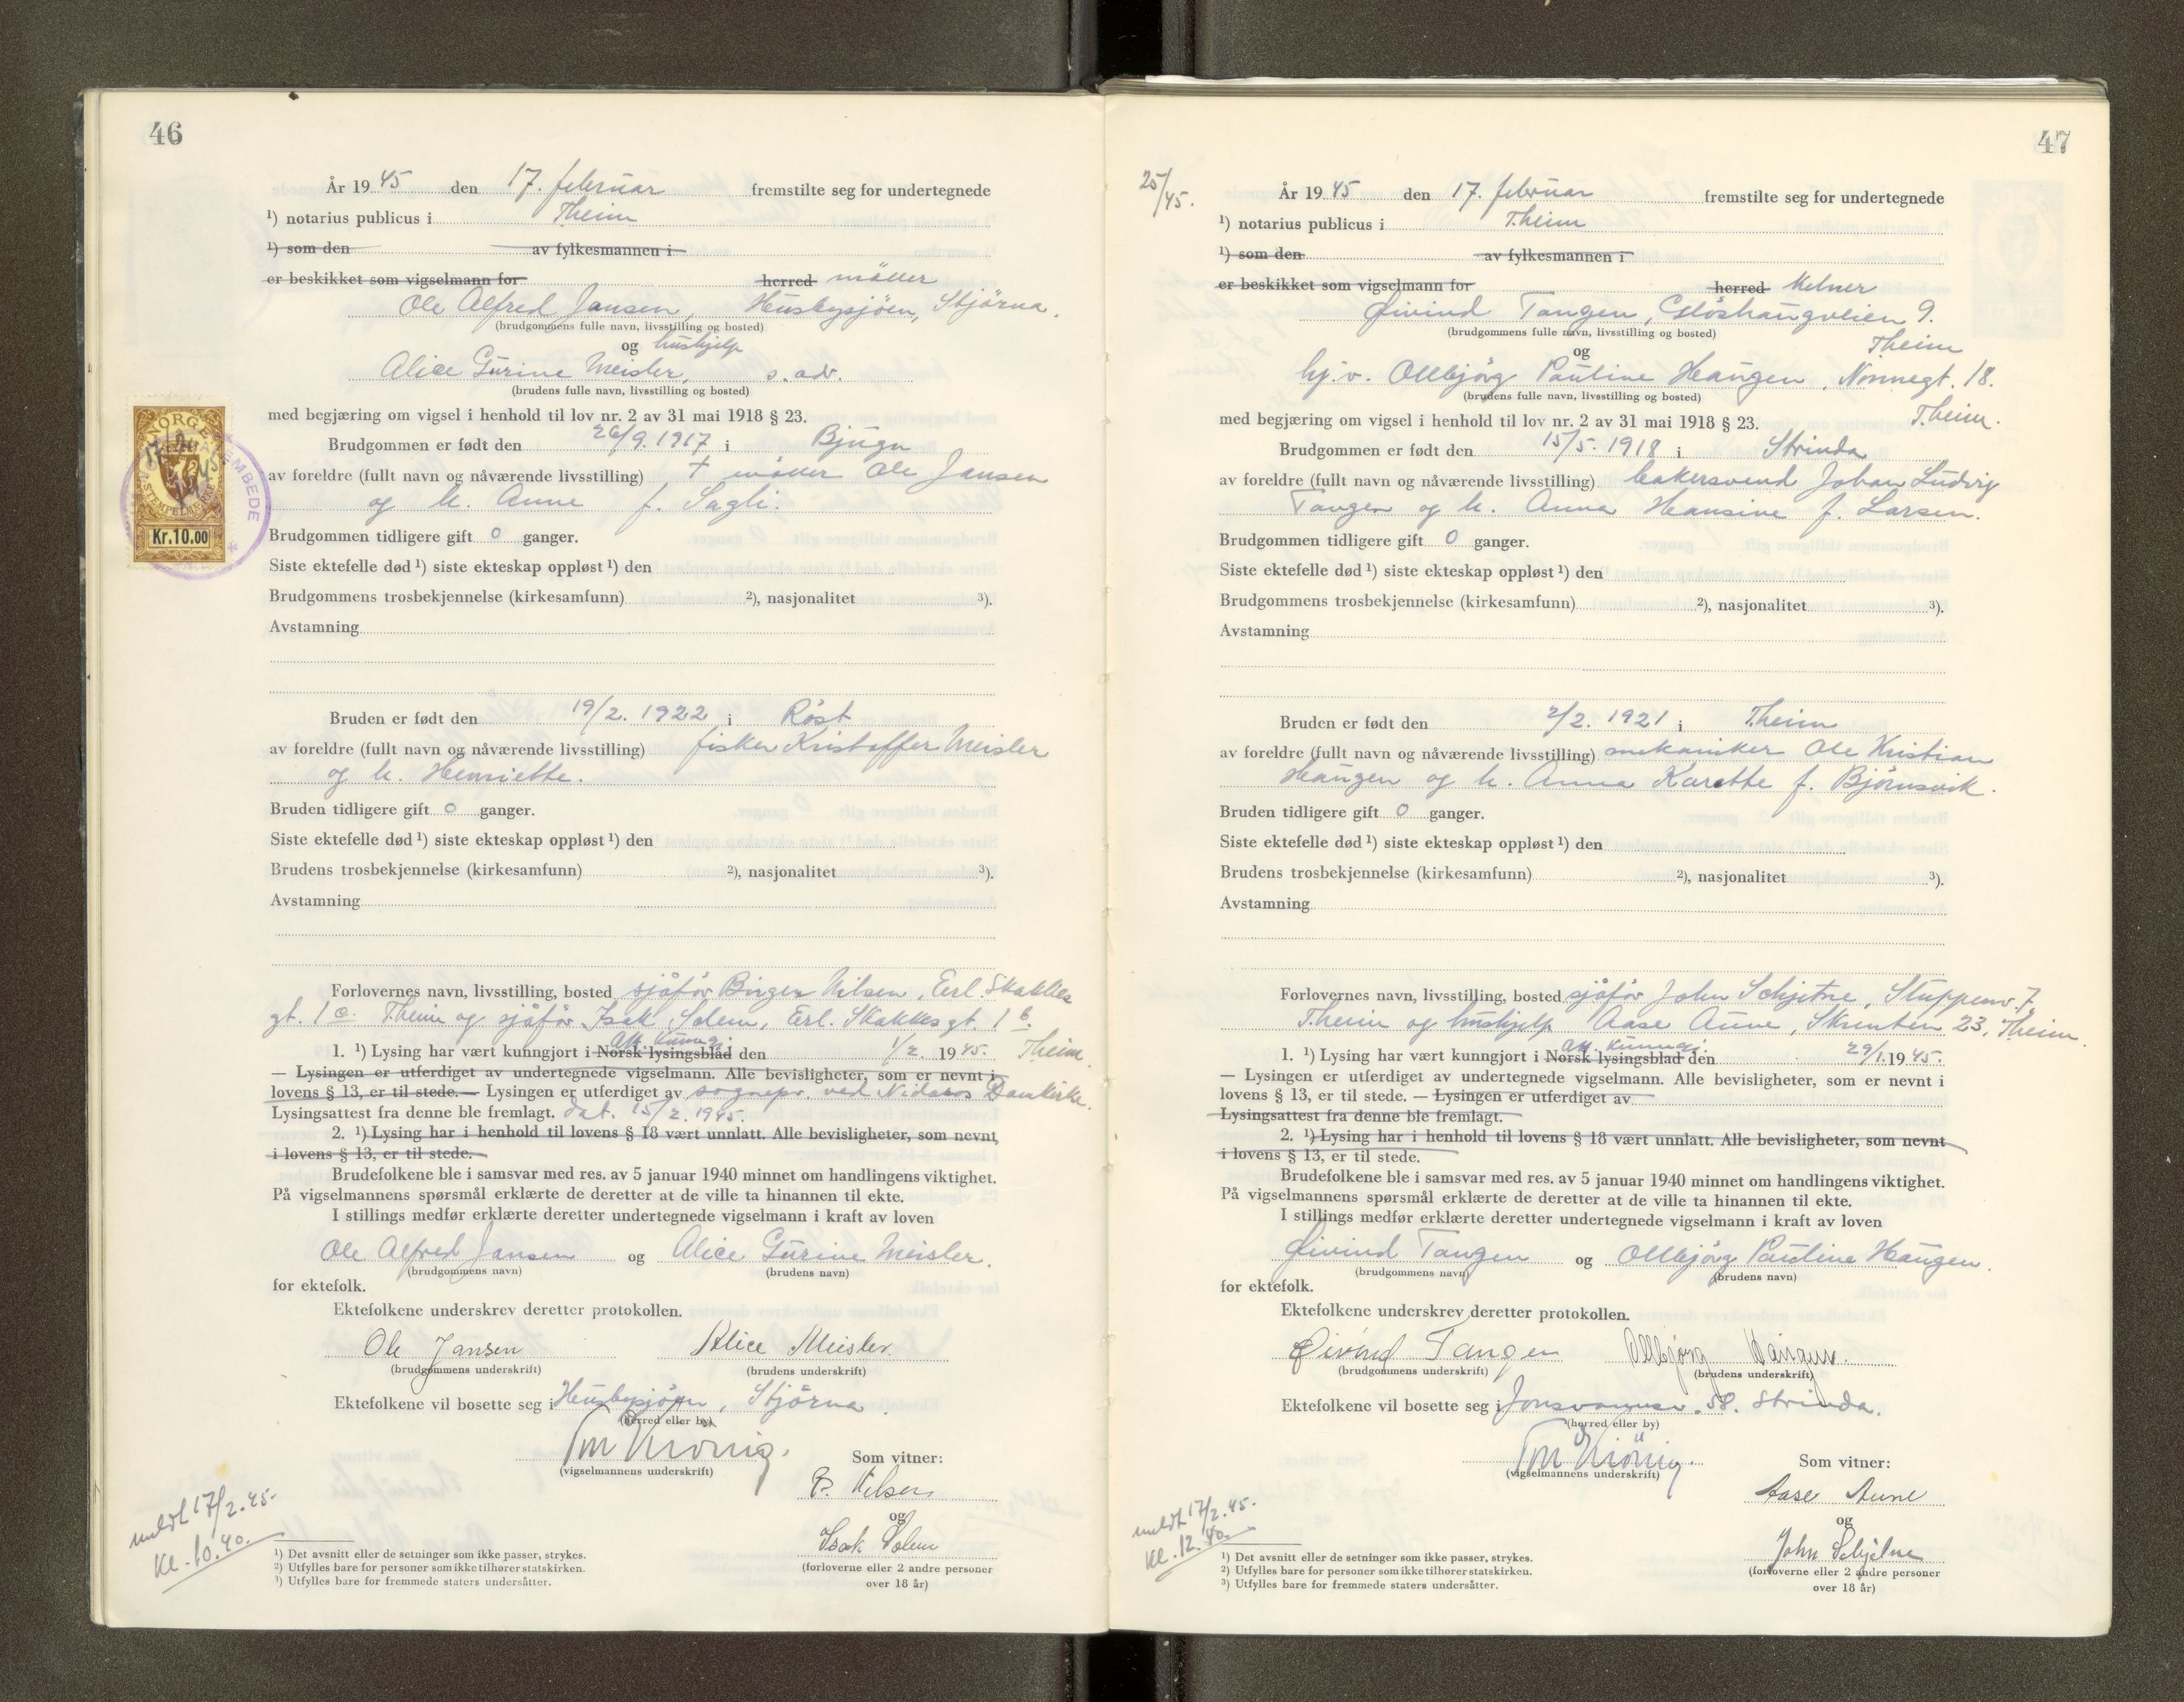 46
År 1945 den 17. februar fremstilte seg for undertegnede
¹) notarius publicus i Theim
¹) som den av fylkesmannen i
er beskikket som vigselmann for herred møller
Ole Alfred Jansen, Husbysjøen, Stjørna.
(brudgommens fulle navn, livsstilling og bosted)
og hushjelp
Alice Gurine Meisler, s. adr.
(brudens fulle navn, livsstilling og bosted)
med begjæring om vigsel i henhold til lov nr. 2 av 31 mai 1918 § 23.
Brudgommen er født den 26/9. 1917 i Bjugn
av foreldre (fullt navn og nåværende livsstilling) † møller Ole Jansen
og h. Anne f. Sagli.
NORGE
STEMPELMERKE
Kr.10.00
EMBEDE
Brudgommen tidligere gift 0 ganger.
Siste ektefelle død ¹) siste ekteskap oppløst ¹) den
Brudgommens trosbekjennelse (kirkesamfunn) ²), nasjonalitet ³).
Avstamning
Bruden er født den 19/2. 1922 i Røst
av foreldre (fullt navn og nåværende livsstilling) fisker Kristoffer Meisler
og h. Henriette.
Bruden tidligere gift 0 ganger.
Siste ektefelle død ¹) siste ekteskap oppløst ¹) den
Brudens trosbekjennelse (kirkesamfunn) ²), nasjonalitet ³).
Avstamning
Forlovernes navn, livsstilling, bosted sjåfør Birger Nilsen, Erl. Skakkes
gt. 1 c. Theim og sjåfør Isak Solem, Erl. Skakkes gt. 1 c.
1. ¹) Lysing har vært kunngjort i Norsk lysingsblad Off. kunngj. den 1/2. 1945. Theim
— Lysingen er utferdiget av undertegnede vigselmann. Alle bevisligheter, som er nevnt i
lovens § 13, er til stede. — Lysingen er utferdiget av sognepr. ved Nidaros Domkirke.
Lysingsattest fra denne ble fremlagt. dat. 15/2. 1945.
2. ¹) Lysing har i henhold til lovens § 18 vært unnlatt. Alle bevisligheter, som nevnt
i lovens § 13, er til stede.
Brudefolkene ble i samsvar med res. av 5 januar 1940 minnet om handlingens viktighet.
På vigselmannens spørsmål erklærte de deretter at de ville ta hinannen til ekte.
I stillings medfør erklærte deretter undertegnede vigselmann i kraft av loven
Ole Alfred Jansen og Alice Gurine Meisler.
(brudgommens navn) (brudens navn)
for ektefolk.
Ektefolkene underskrev deretter protokollen.
Ole Jansen Alice Meisler
(brudgommens underskrift) (brudens underskrift)
Ektefolkene vil bosette seg i Husbysjøen, Stjørna.
(herred eller by)
(vigselmannens underskrift)
Som vitner:
B. Nilsen
og
Isak Solem
(forloverne eller 2 andre personer
over 18 år)
meldt 17/2. 45.
Kl. 10.40.
¹) Det avsnitt eller de setninger som ikke passer, strykes.
²) Utfylles bare for personer som ikke tilhører statskirken.
³) Utfylles bare for fremmede staters undersåtter.
47
25/45.
År 1945 den 17. februar fremstilte seg for undertegnede
¹) notarius publicus i Theim
¹) som den av fylkesmannen i
er beskikket som vigselmann for herred Kelner
Øivind Tangen, Gløshaugveien 9.
(brudgommens fulle navn, livsstilling og bosted) Theim
og
hj.v. Ollbjørg Pauline Haugen, Nonnegt. 18.
(brudens fulle navn, livsstilling og bosted)
med begjæring om vigsel i henhold til lov nr. 2 av 31 mai 1918 § 23. Theim.
Brudgommen er født den 15/5. 1918 i Strinda
av foreldre (fullt navn og nåværende livsstilling) bakersvend Johan Ludvig
Tangen og h. Anna Hansine f. Larsen.
Brudgommen tidligere gift 0 ganger.
Siste ektefelle død ¹) siste ekteskap oppløst ¹) den
Brudgommens trosbekjennelse (kirkesamfunn) ²), nasjonalitet ³).
Avstamning
Bruden er født den 2/2. 1921 i Theim
av foreldre (fullt navn og nåværende livsstilling) mekaniker Ole Kristian
Haugen og h. Anna Karette f. Bjørnsvik.
Bruden tidligere gift 0 ganger.
Siste ektefelle død ¹) siste ekteskap oppløst ¹) den
Brudens trosbekjennelse (kirkesamfunn) ²), nasjonalitet ³).
Avstamning
Forlovernes navn, livsstilling, bosted sjåfør John Schjetne, Stuppenv. 7,
Theim og hushjelp Aase Aune, Skrenten 23, Theim.
1. ¹) Lysing har vært kunngjort i Norsk lysingsblad Off. kunngj. den 29/1. 1945.
— Lysingen er utferdiget av undertegnede vigselmann. Alle bevisligheter, som er nevnt i
lovens § 13, er til stede. — Lysingen er utferdiget av
Lysingsattest fra denne ble fremlagt.
2. ¹) Lysing har i henhold til lovens § 18 vært unnlatt. Alle bevisligheter, som nevnt
i lovens § 13, er til stede.
Brudefolkene ble i samsvar med res. av 5 januar 1940 minnet om handlingens viktighet.
På vigselmannens spørsmål erklærte de deretter at de ville ta hinannen til ekte.
I stillings medfør erklærte deretter undertegnede vigselmann i kraft av loven
Øivind Tangen og Ollbjørg Pauline Haugen.
(brudgommens navn) (brudens navn)
for ektefolk.
Ektefolkene underskrev deretter protokollen.
Øivind Tangen Ollbjørg Haugen.
(brudgommens underskrift) (brudens underskrift)
Ektefolkene vil bosette seg i Jonsvannsv. 58. Strinda.
(herred eller by)
(vigselmannens underskrift)
Som vitner:
Aase Aune
og
John Schjetne
(forloverne eller 2 andre personer
over 18 år)
meldt 17/2. 45.
Kl. 12.40.
¹) Det avsnitt eller de setninger som ikke passer, strykes.
²) Utfylles bare for personer som ikke tilhører statskirken.
³) Utfylles bare for fremmede staters undersåtter.